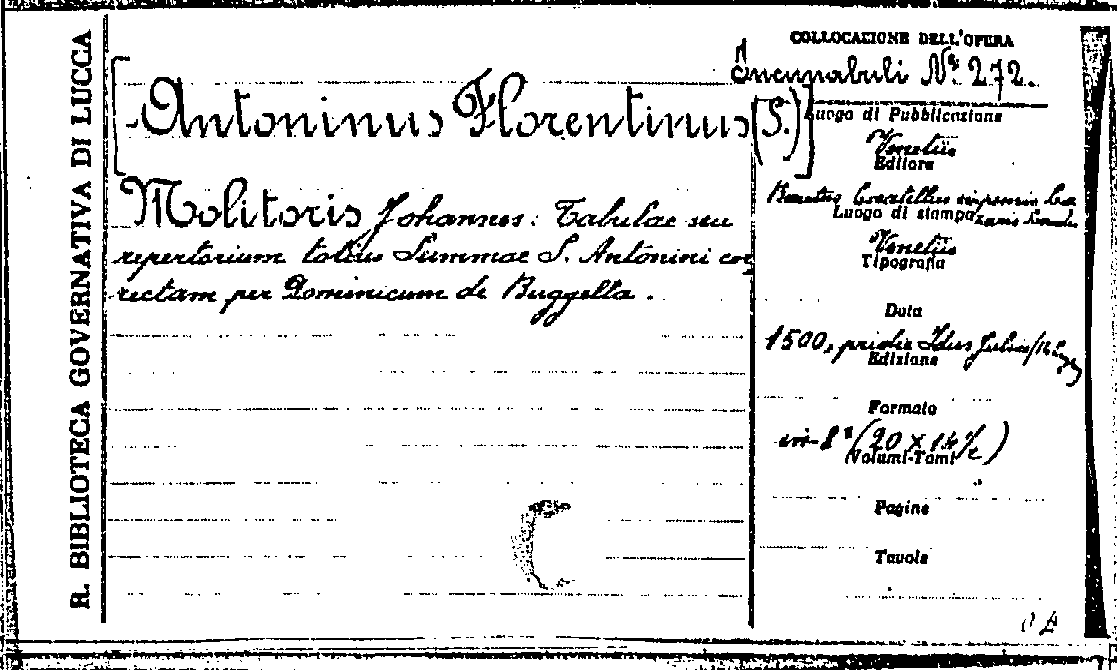 R. BIBLIOTECA GOVERNATIVA DI LUCCA
[Antoninus Florentinus (S.)]
Molitoris Johannes: Tabulae seu
repertorium totius Summae S. Antonini cor
rectam per Dominicum de Buggella.
COLLOCAZIONE DELL'OPERA
Incunabuli Nº 272.
Luogo di Pubblicazione
Venetiis
Editore
Luogo di stampa
Venetiis
Tipografia
Data
1500, pridie Idus
Edizione
Formato
in-8º (20 x 14½)
Volumi-Tomi
Pagine
Tavole